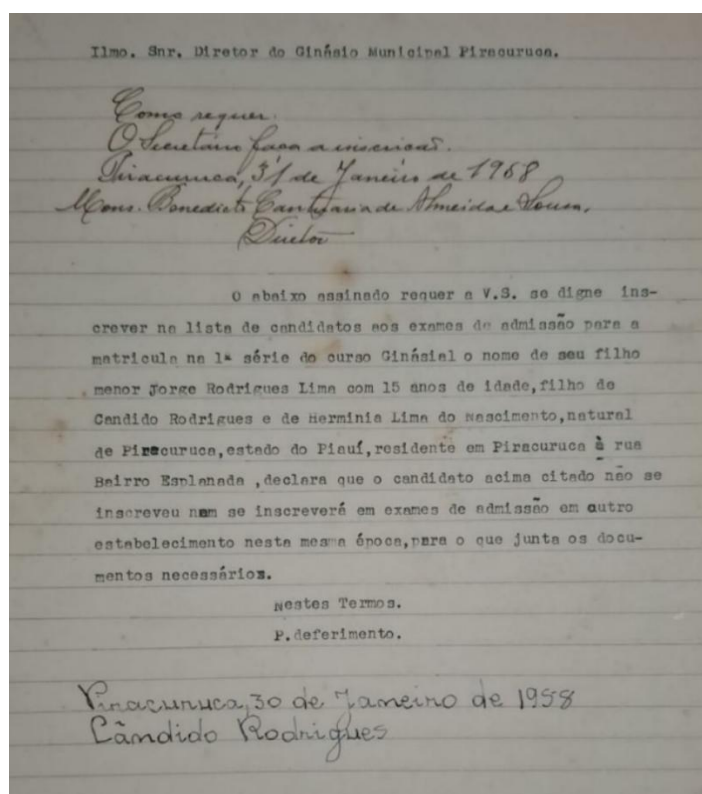 Ilmo. Snr. Diretor do Ginásio Municipal Piracuruca.
Como requer.
O Secretário faça a inscricão.
Piracuruca, 31 de Janeiro de 1958
Mons. Benedicto Cantuaria de Almeida e Sousa,
Diretor
O abaixo assinado requer a V.S. se digne ins-
crever na lista de candidatos aos exames de admissão para a
matricula na 1ª série do curso Ginásial o nome de seu filho
menor Jorge Rodrigues Lima com 15 anos de idade,filho de
Candido Rodrigues e de Herminia Lima do Nascimento,natural
de Piracuruca,estado do Piauí,residente em Piracuruca à rua
Bairro Esplanada ,declara que o candidato acima citado não se
inscreveu nem se inscreverá em exames de admissão em outro
estabelecimento nesta mesma época,para o que junta os docu-
mentos necessários.
Nestes Termos.
P.deferimento.
Piracuruca, 30 de Janeiro de 1958
Cândido Rodrigues